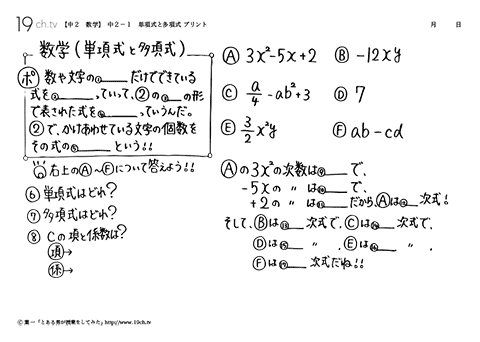 19ch.tv 【中2 数学】 中2-1 単項式と多項式 プリント 月 日
数学(単項式と多項式)
ポ 数や文字の①____だけでできている
式を②____っていって、②の③____の形
で表された式を④____っていうんだ。
②で、かけあわせている文字の個数を
その式の⑤____という!!
右上のⒶ〜Ⓕについて答えよう!!
⑥ 単項式はどれ?
⑦ 多項式はどれ?
⑧ Cの項と係数は?
項→
係→
Ⓐ 3x²-5x+2 Ⓑ -12xy
Ⓒ a/4-ab²+3 Ⓓ 7
Ⓔ 3/2x²y Ⓕ ab-cd
Ⓐの3x²の次数は⑨____で、
-5xの 〃 は⑩____で、
+2の 〃 は⑪____だから、Ⓐは⑫____次式!
そして、Ⓑは⑬____次式で、Ⓒは⑭____次式で、
Ⓓは⑮____ 〃 、Ⓔは⑯____ 〃 、
Ⓕは⑰____次式だね!!
Ⓒ 葉一「とある男が授業をしてみた」http://www.19ch.tv